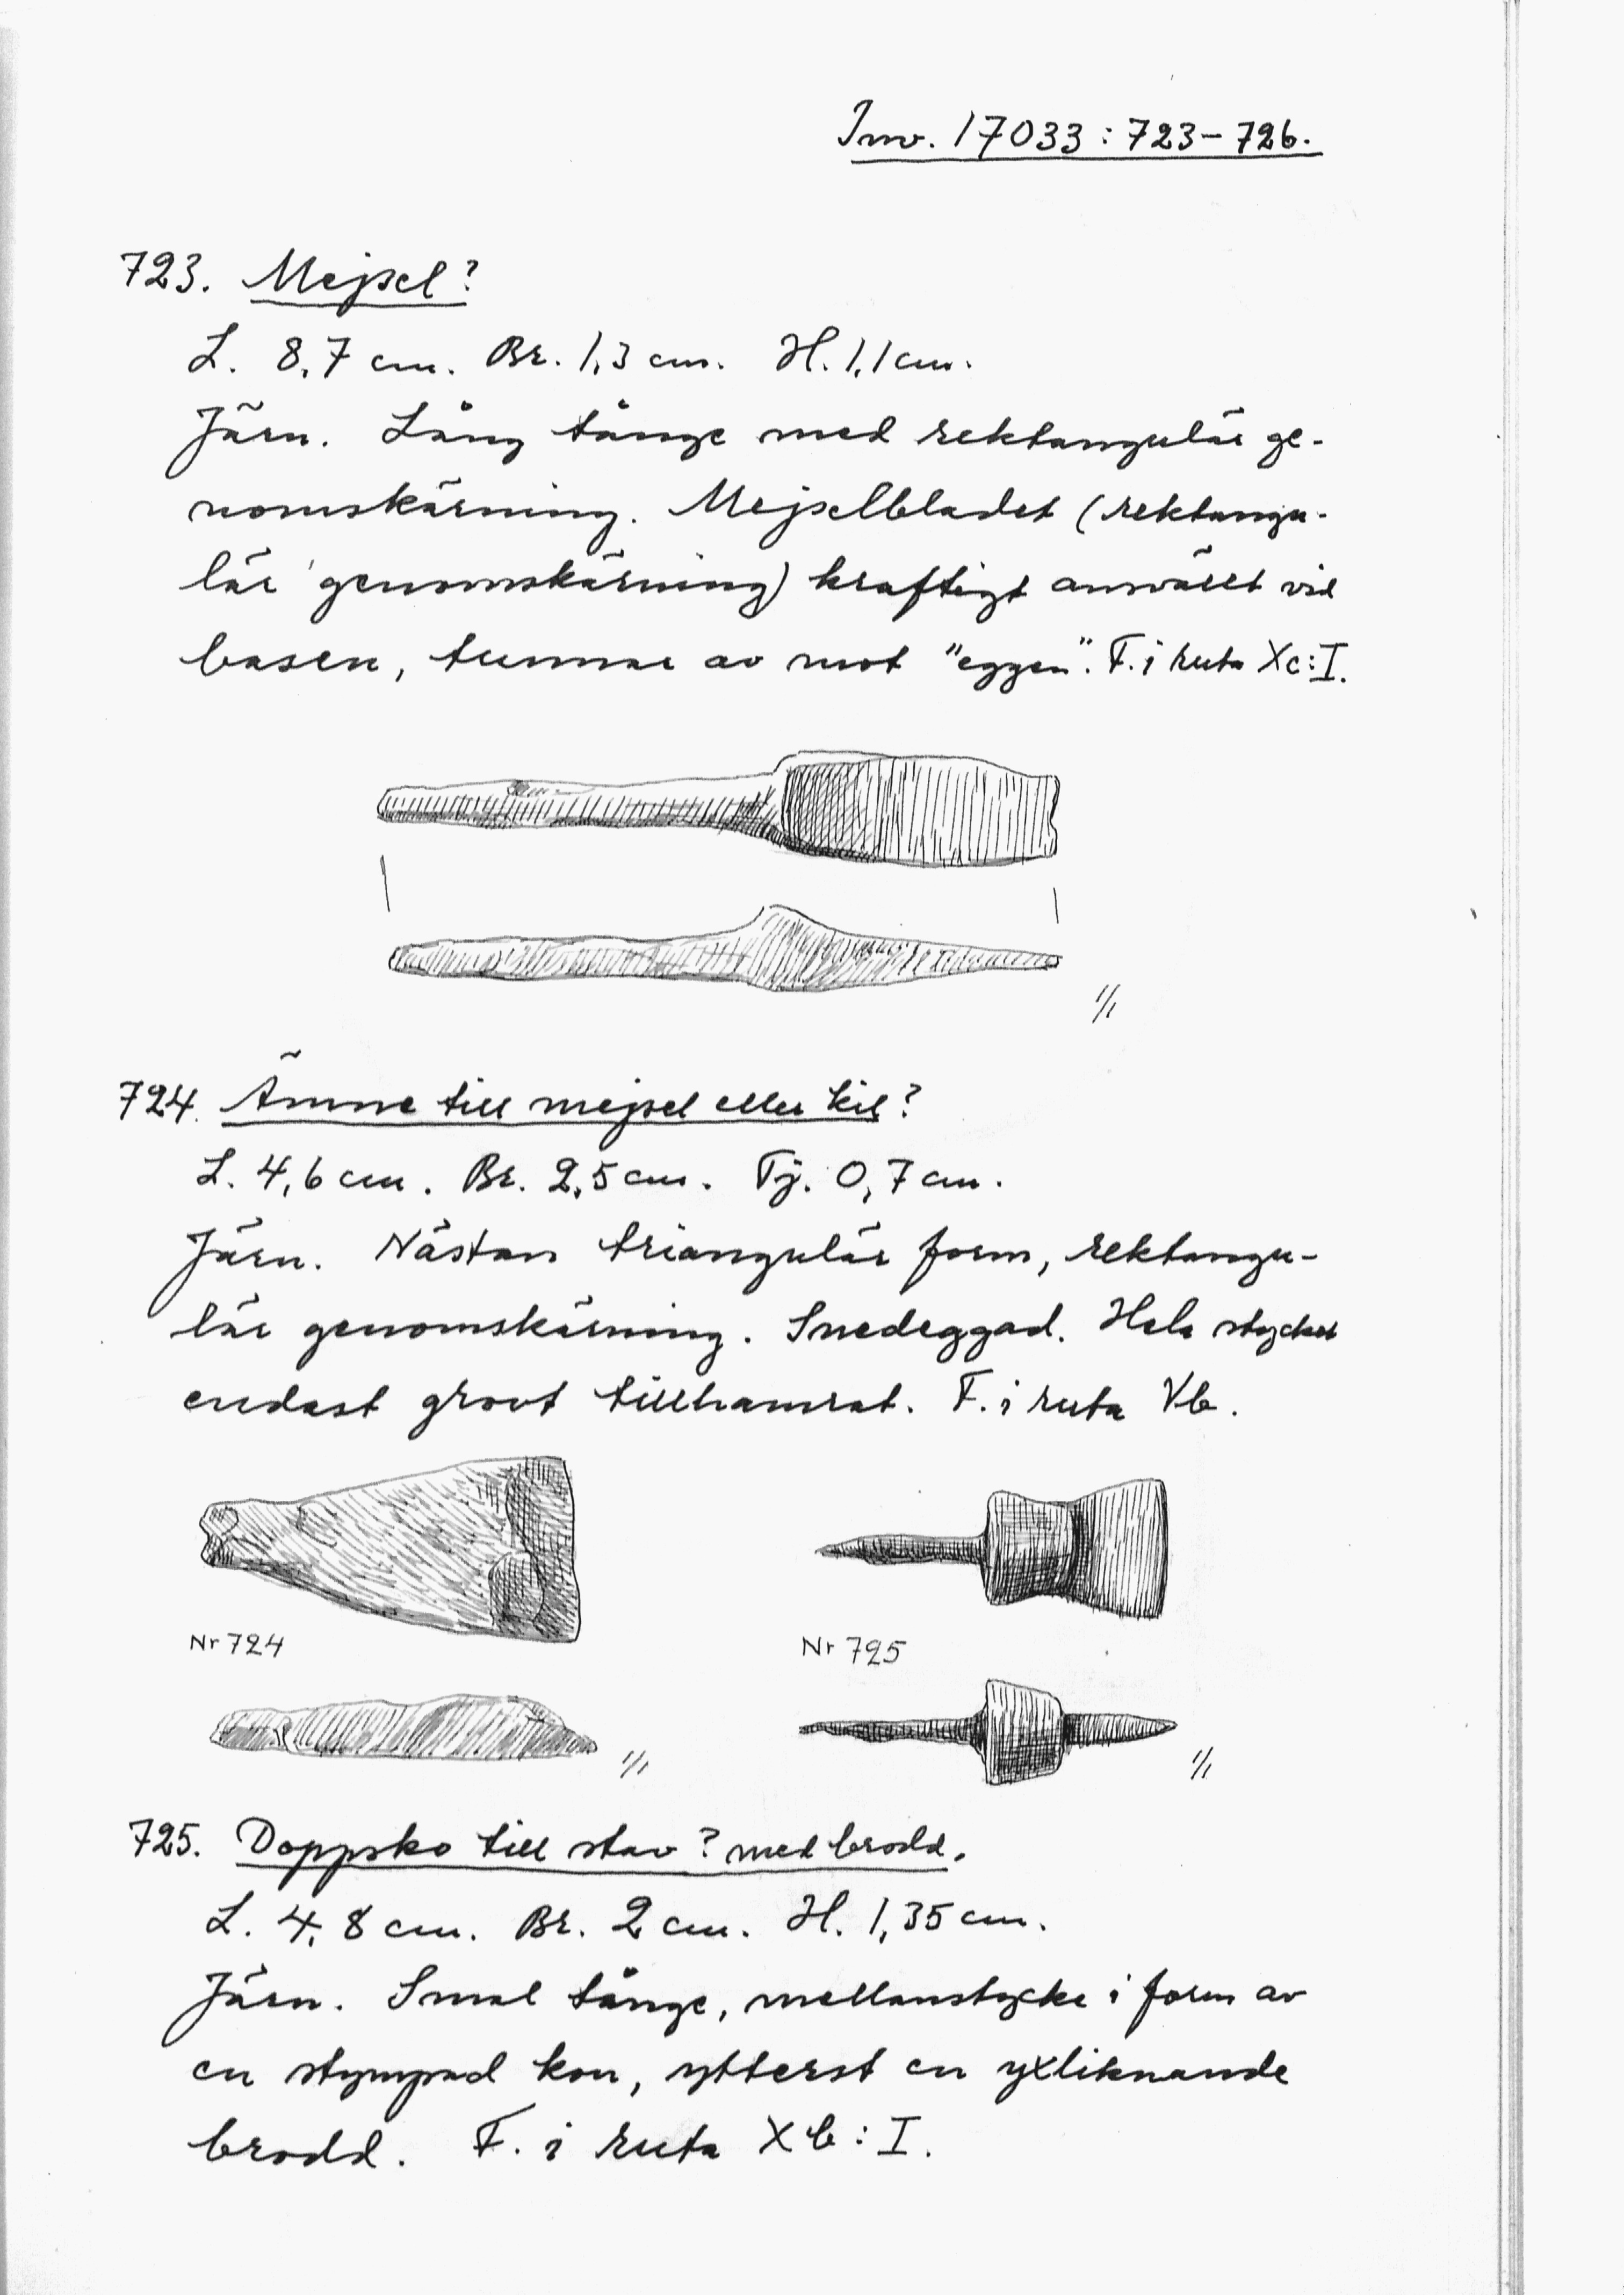 Inv. 17033:723-726.
723. Mejsel?
L. 8,7 cm. Br. 1,3 cm. H. 1,1 cm.
Järn. Lång tånge med rektangulär ge-
nomskärning. Mejselbladet (rektangu-
lär genomskärning) kraftigt ansvällt vid
basen, tunnar av mot "eggen". F. i ruta Xc:I.
1/1
724. Ämne till mejsel eller kil?
L. 4,6 cm. Br. 2,5 cm. Tj. 0,7 cm.
Järn. Nästan triangulär form, rektangu-
lär genomskärning. Snedeggad. Hela stycket
endast grovt tillhamrat. F. i ruta Vb.
Nr 724
Nr 725
1/1
1/1
725. Doppsko till stav? med brodd.
L. 4,8 cm. Br. 2 cm. H. 1,35 cm.
Järn. Smal tånge, mellanstycke i form av
en stympad kon, ytterst en yxliknande
brodd. F. i ruta Xb:I.